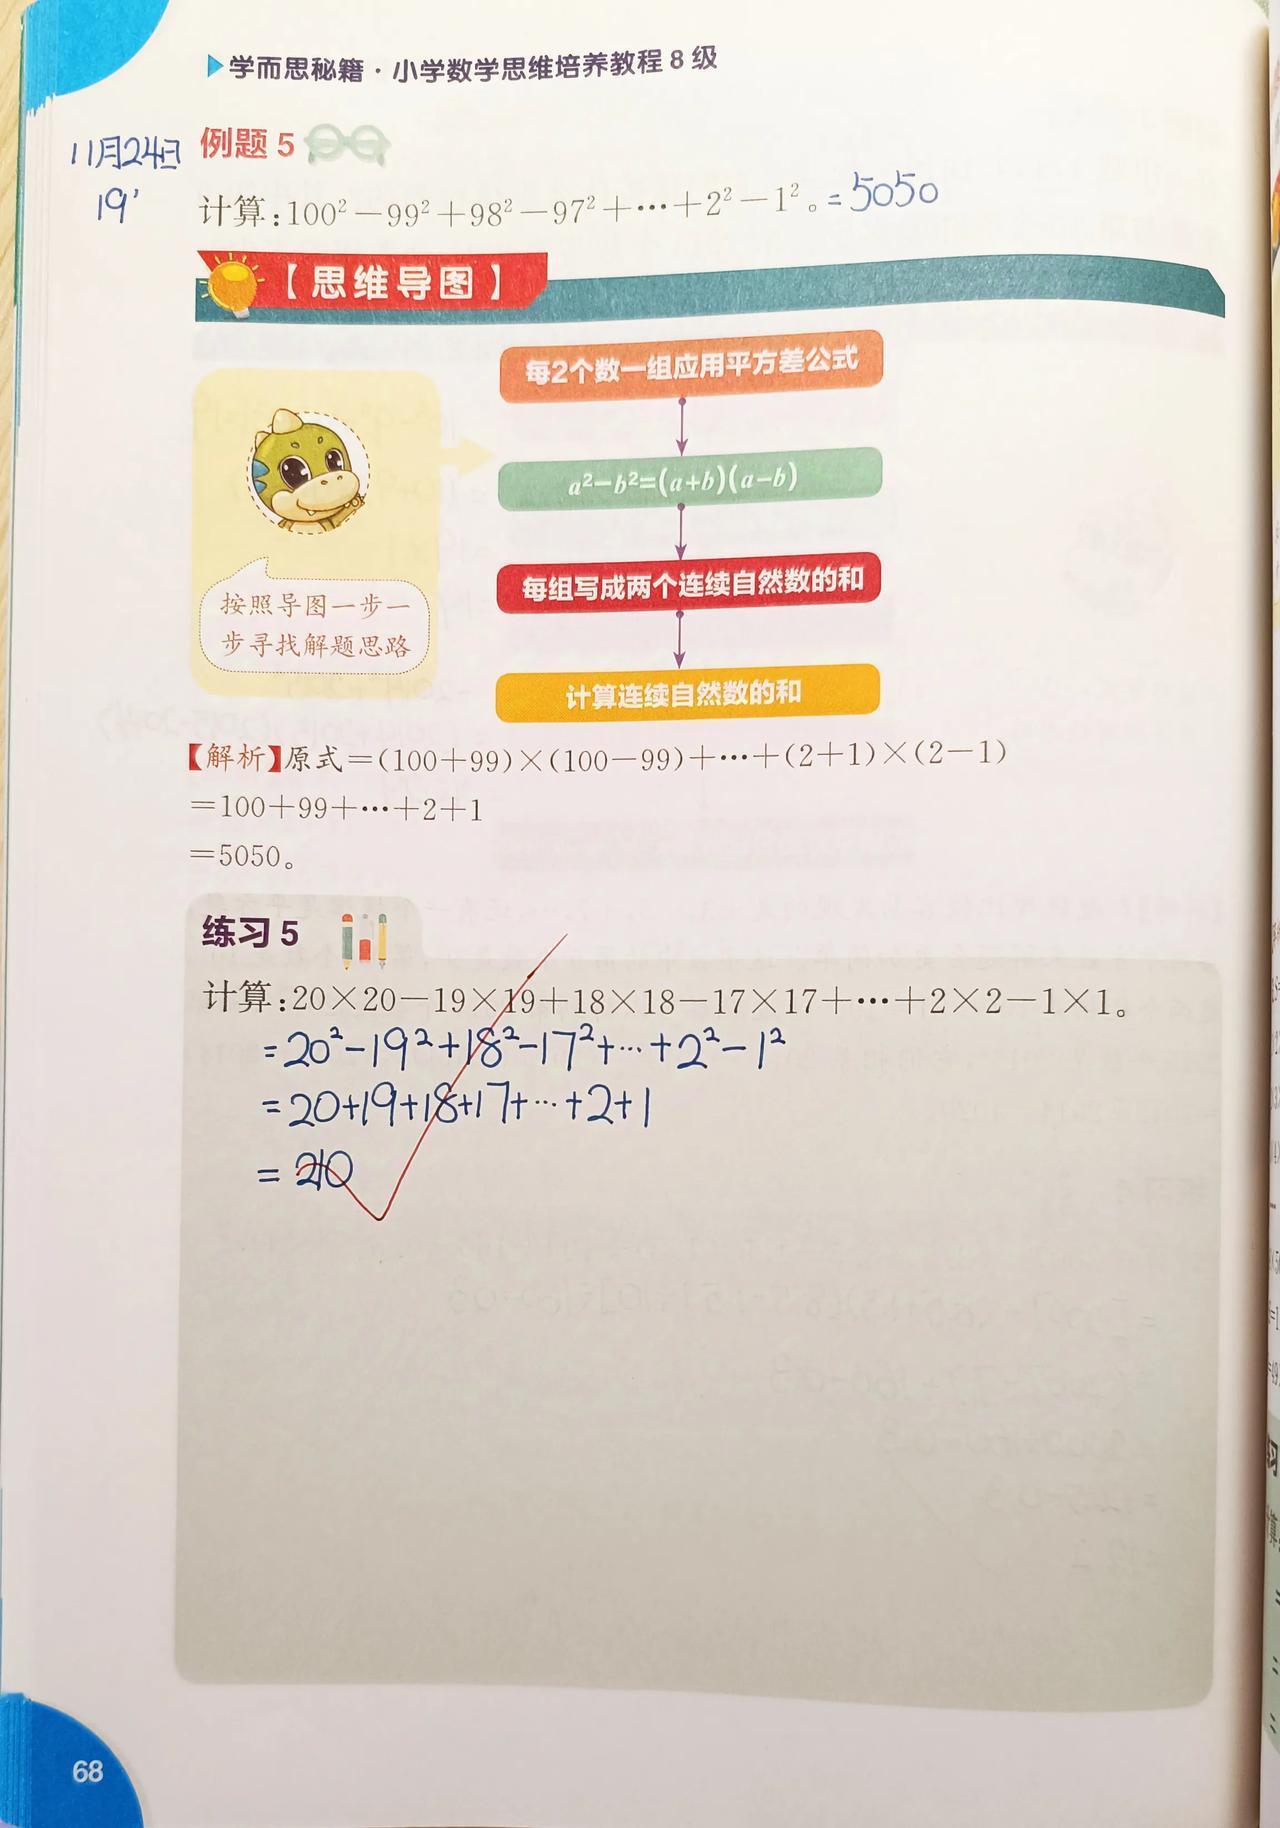 学而思秘籍·小学数学思维培养教程8级
11月24日
19'
例题5
计算:100²-99²+98²-97²+…+2²-1²。=5050
【思维导图】
每2个数一组应用平方差公式
a²-b²=(a+b)(a-b)
每组写成两个连续自然数的和
计算连续自然数的和
按照导图一步一
步寻找解题思路
【解析】原式=(100+99)×(100-99)+…+(2+1)×(2-1)
=100+99+…+2+1
=5050。
练习5
计算:20×20-19×19+18×18-17×17+…+2×2-1×1。
=20²-19²+18²-17²+…+2²-1²
=20+19+18+17+…+2+1
=210
68